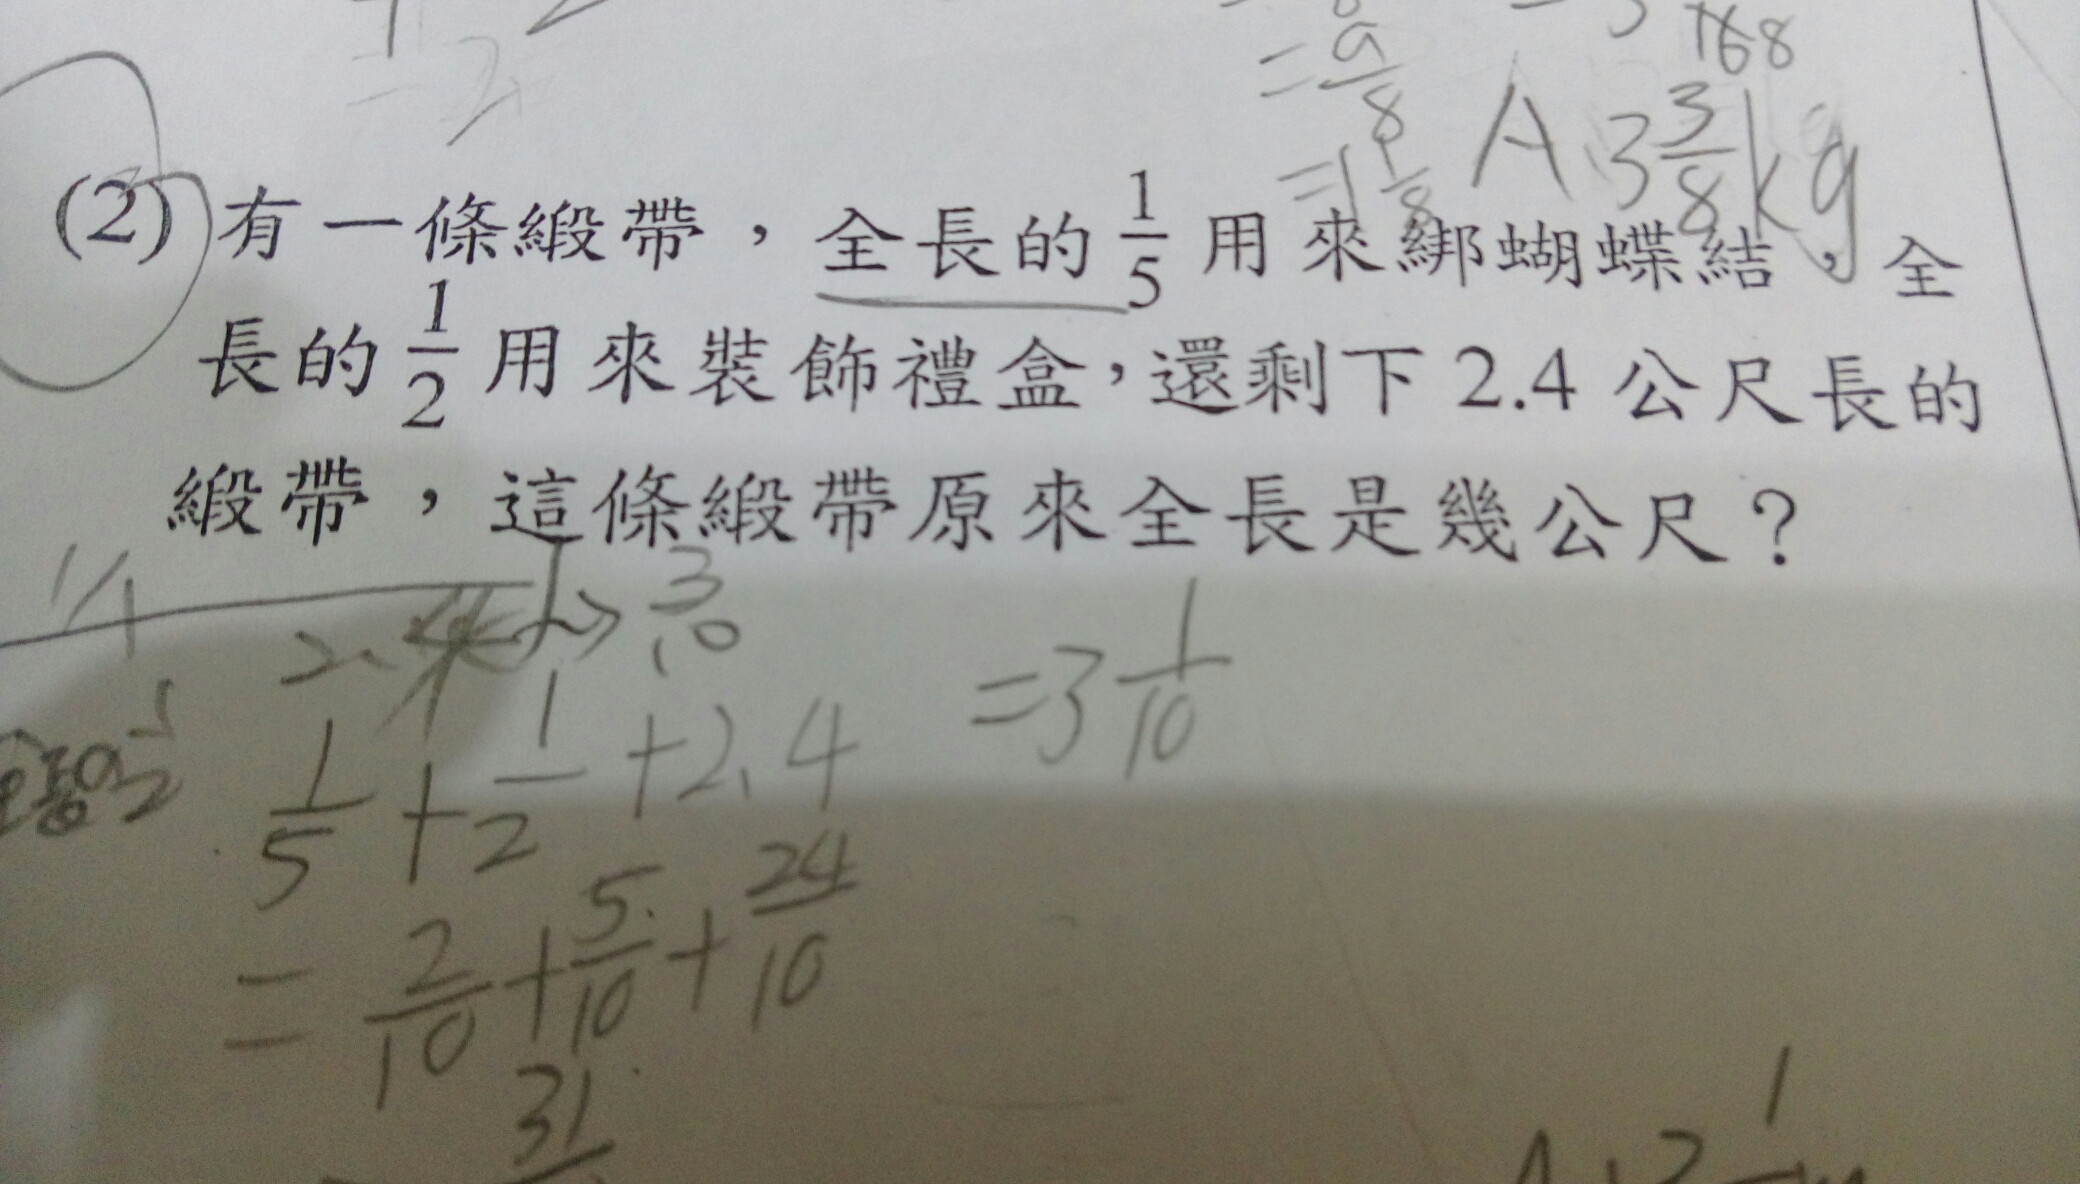 = 9/8
168
= 1 1/8
A 3 3/8 kg
(2) 有一條緞帶，全長的 1/5 用來綁蝴蝶結，全
長的 1/2 用來裝飾禮盒，還剩下 2.4 公尺長的
緞帶，這條緞帶原來全長是幾公尺？
3/10
1/5 + 1/2 + 2.4 = 3 1/10
= 2/10 + 5/10 + 24/10
31